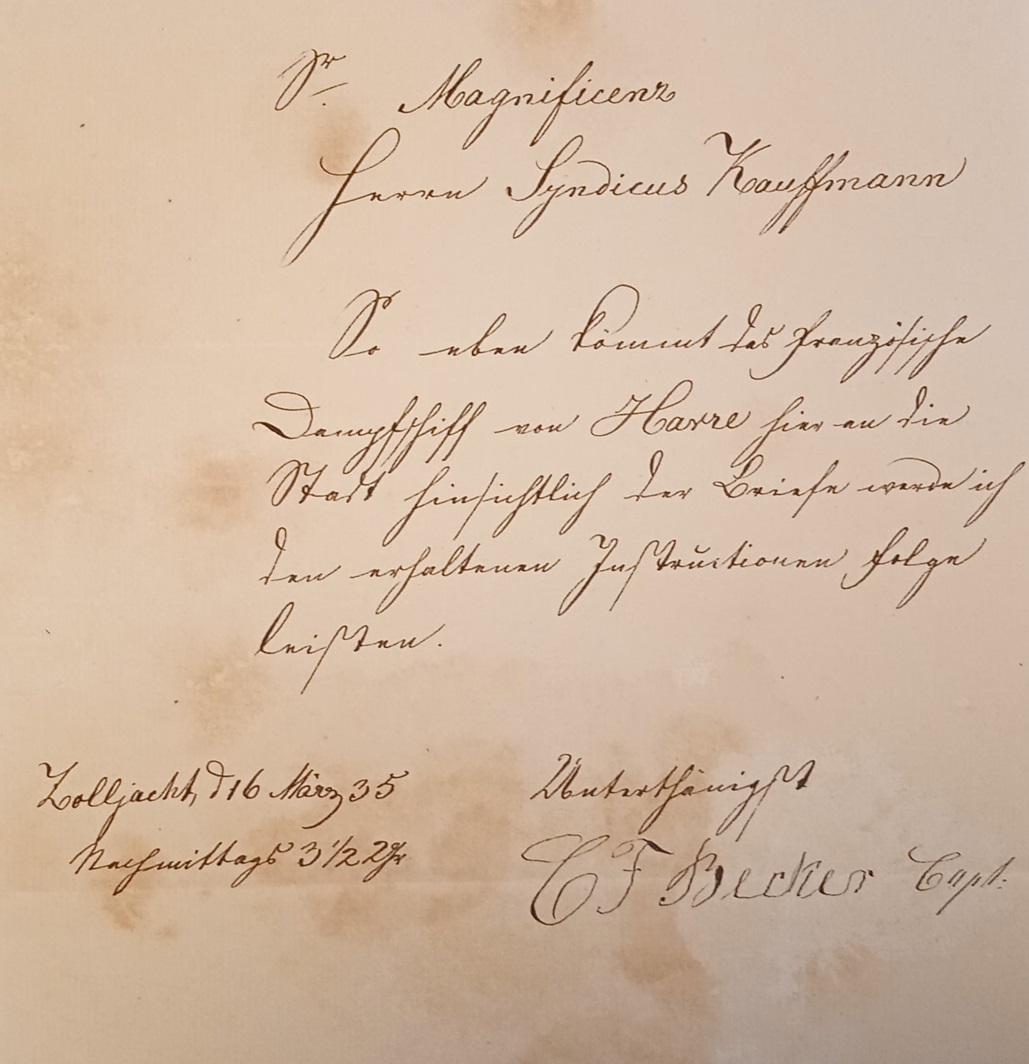 Sr Magnificenz
Herrn Syndicus Kauffmann
So eben kömmt das französische
Dampfschiff von Havre hier an die
Stadt hinsichtlich der Briefe werde ich
den erhaltenen Instructionen folge
leisten.
Zolljacht, d 16 März 35
Nachmittags 3 1/2 Uhr
Unterthänigst
C F Becker Capt: